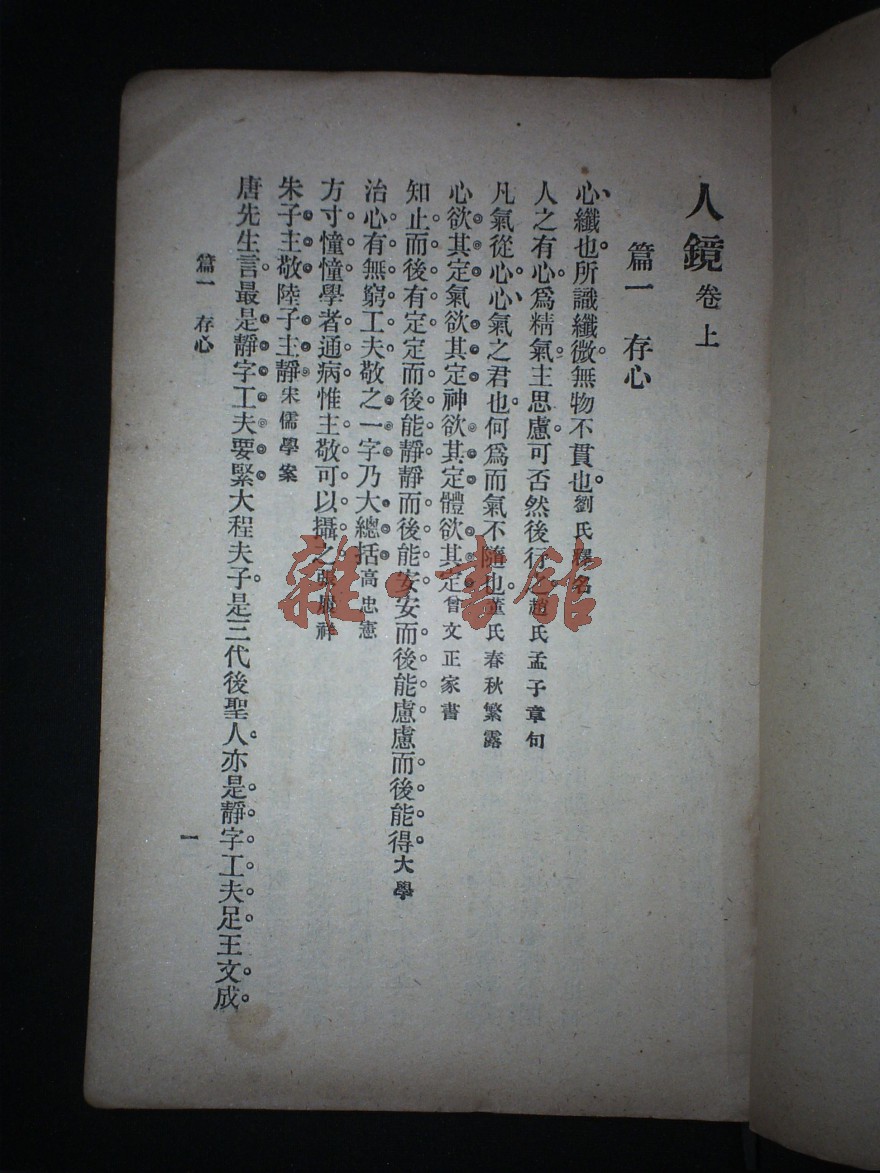 人鏡 卷上
篇一 存心
心纖也所識纖微無物不貫也 劉氏釋名
人之有心爲精氣主思慮可否然後行之 趙氏孟子章句
凡氣從心心氣之君也何爲而氣不隨也 董氏春秋繁露
心欲其定氣欲其定神欲其定體欲其定 曾文正家書
知止而後有定定而後能靜靜而後能安安而後能慮慮而後能得 大學
治心有無窮工夫敬之一字乃大總括 高忠憲
方寸憧憧學者通病惟主敬可以攝之 祥
朱子主敬陸子主靜 宋儒學案
唐先生言最是靜字工夫要緊大程夫子是三代後聖人亦是靜字工夫足王文成
篇一 存心
一
雜·書館